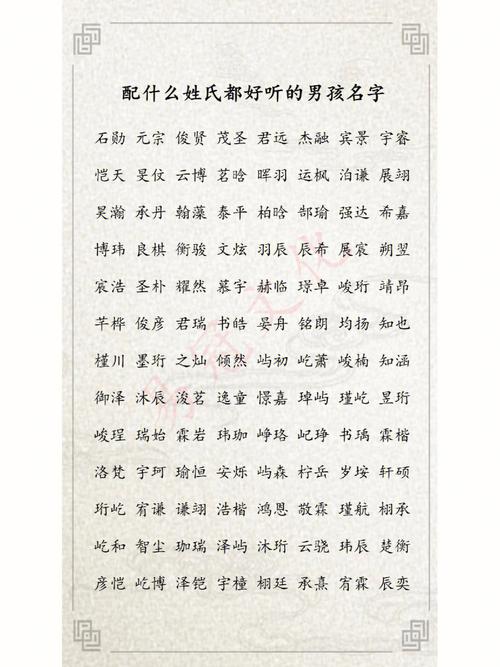 配什么姓氏都好听的男孩名字
石勋 元宗 俊贤 茂圣 君远 杰融 宾景 宇睿
恺天 旻仗 云博 茗晗 晖羽 运枫 泊谦 展翊
昊瀚 承丹 翰藻 泰平 柏晗 郜瑜 强达 希嘉
博玮 良棋 衡骏 文炫 羽辰 辰希 展宸 朔翌
宸浩 圣朴 耀然 慕宇 赫临 璟卓 峻珩 靖昂
芊桦 俊彦 君瑞 书皓 晏舟 铭朗 均扬 知也
槿川 墨珩 之灿 倾然 屿初 屹萧 峻楠 知涵
御泽 沐辰 浚茗 逸童 憬嘉 琸屿 瑾屹 昱珩
峻珵 瑞始 霖岩 玮珈 峥珞 屺琤 书瑀 霖楷
洛梵 宇珂 瑜恒 安烁 屿森 柠岳 岁垵 轩硕
珩屹 宥谦 谦翊 浩楷 鸿恩 敬霖 瑾航 栩承
屹和 智尘 珈瑞 泽屿 沐珩 云骁 玮辰 楚衡
彦恺 屹博 泽铠 宇橦 栩廷 承熹 宥霖 辰奕